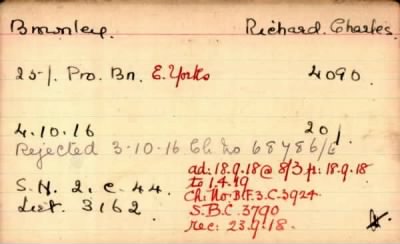 Brownley. Richard. Charles.
25/. Pro. Bn. E. Yorks 4090.
4.10.16 20/.
Rejected 3-10-16 Ch. No 68486/E
ad: 18.9.18 @ 8/3 p: 18.9.18
to 1.4.19
S.N. 2. C. 44. Ch: No: B/F. 3. C. 3924
List. 3162. S.B.C. 3790
rec: 23.9.18.